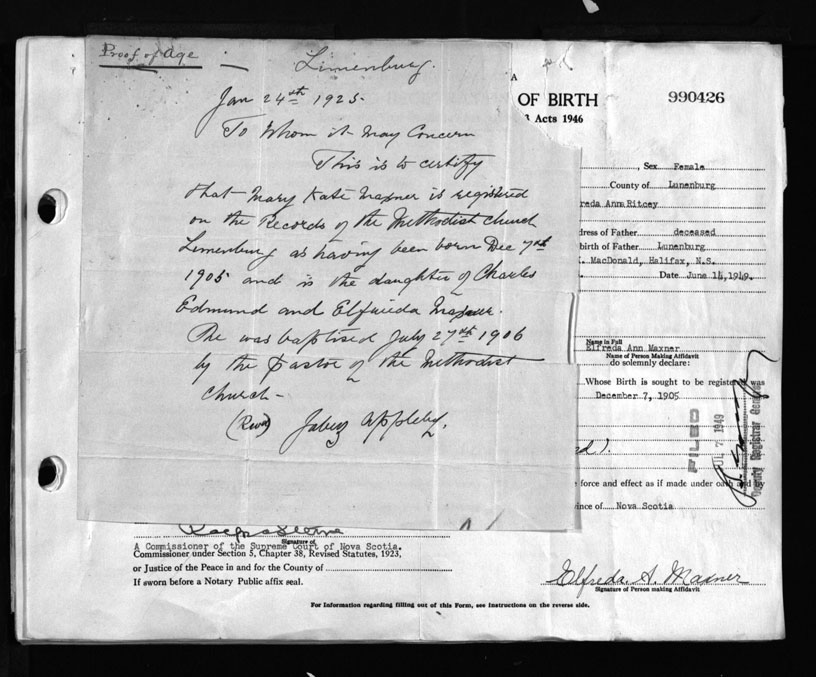 Proof of Age
Lunenburg.
Jan 24th 1925.
To Whom it May Concern
This is to certify
that Mary Kate Maxner is registered
on the Records of the Methodist church
Lunenburg as having been born Dec 7th
1905 and is the daughter of Charles
Edmund and Elfrieda Maxner.
She was baptised July 27th 1906
by the pastor of the Methodist
church -
(Revd) Jabez Appleby.
A
OF BIRTH
990426
3 Acts 1946
, Sex Female
County of Lunenburg
freda Ann Ritcey
dress of Father deceased
birth of Father Lunenburg
. MacDonald, Halifax, N.S.
Date June 14, 1949.
Name in Full
Elfreda Ann Maxner
Name of Person Making Affidavit
do solemnly declare:
Whose Birth is sought to be registered was
December 7, 1905
FILED
JUL 7 1949
Deputy Registrar General
d).
force and effect as if made under oath and by
ince of Nova Scotia
Signature of
A Commissioner of the Supreme Court of Nova Scotia.
Commissioner under Section 5, Chapter 38, Revised Statutes, 1923,
or Justice of the Peace in and for the County of
If sworn before a Notary Public affix seal.
Elfreda. A. Maxner
Signature of Person making Affidavit
For Information regarding filling out of this Form, see Instructions on the reverse side.